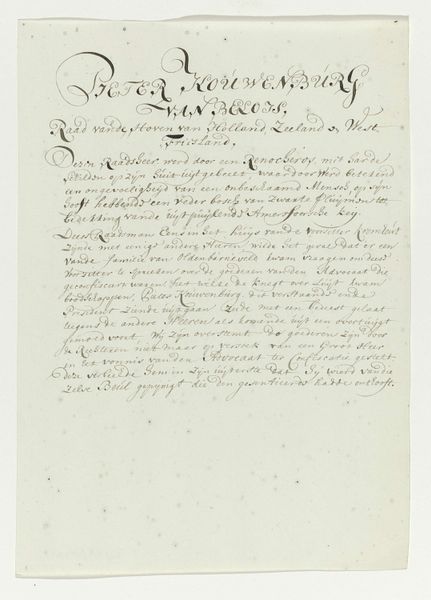 PIETER KOUWENBURG
VAN BELOIS,
Raad vande Hoven van Holland Zeeland en West
Friesland,
Dezen Raadsheer werd door een Renocheros, met harde
schilden op zyn huit uijtgebeelt, waardoor werd betekend
een ongevoeligheijd van een onbeschaamd Mensch op zijn
hooft hebbende een veder bosch van zwaare Pluijmen tot
bedekking vande uijtpuijlende Amersfoortse keij.
Deese Raadsman Eens in het huijs vande voorzitter
zijnde met eenige andere Heeren wilde het geval dat er een
vande familie van Oldenbarneveld kwam vraagen om deese
voorzitter te spreeken over de goederen vanden Advocaat die
geconfisceert waren, het welke de knegt over luijt kwam
boodschappen, Pieter Kouwenburg, dit verstaande ende
President ziende uijtgaan Zeide met een bedeest gelaat
teegens de andere Heeren als komende uijt een overtuijgt
gemoed voort. Wij zijn overstemt. de goederen zijn door
de Rechteren niet maar op versoek van een Groot Heer
en tot vonnis vanden Advocaat ter Confiscatie gestelt.
dese verleide hem in zijn uijterste dat hij wierd van die
zelve Beul gepijnigt die den gesententieerde hadde onthooft.